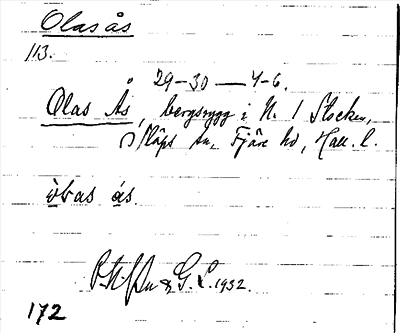 Olas ås
113.
29-30 — 4-6.
Olas Ås, bergsrygg i N. / Stocken,
Släps sn, Fjäre hd, Hall. l.
ás.
& G. L. 1932.
172